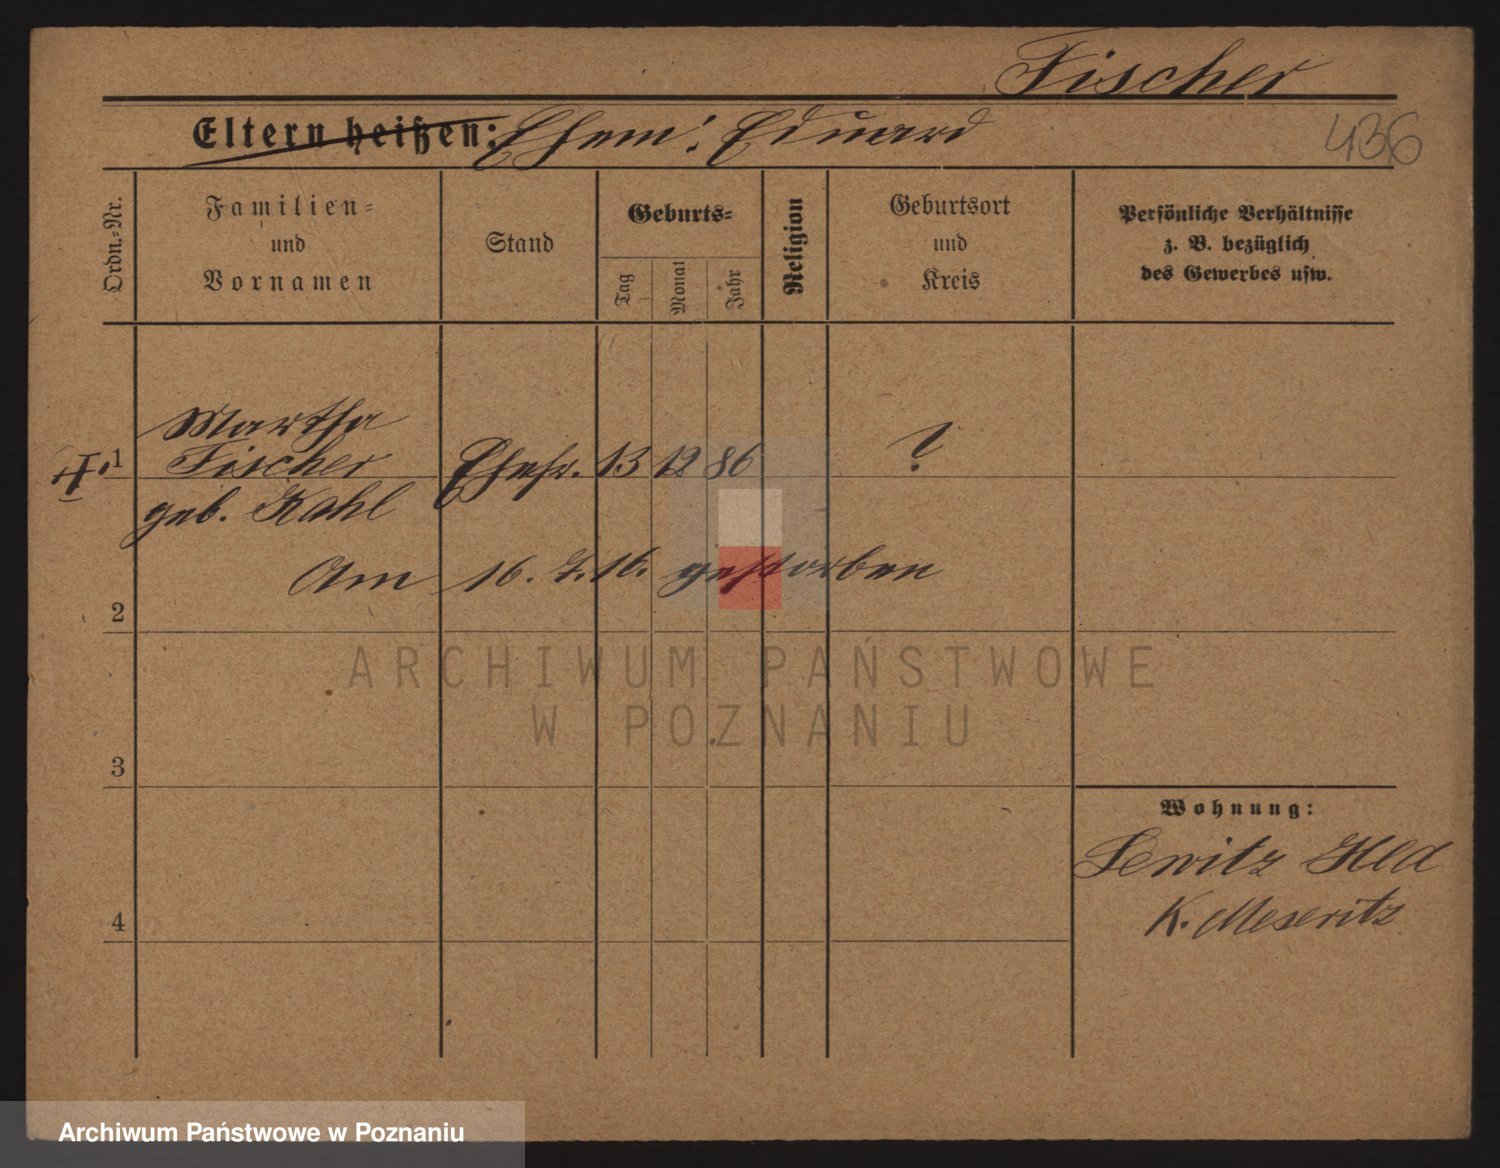 Fischer
Eltern heißen: Ehem: Eduard
436
Ordn.-Nr.
Familien-
und
Vornamen
Stand
Geburts-
Tag
Monat
Jahr
Religion
Geburtsort
und
Kreis
Persönliche Verhältnisse
z. B. bezüglich
des Gewerbes usw.
1
Martha
Fischer
geb. Kahl
Ehefr. 13 12 86 ?
Am 16. 7. 16. gestorben
2
3
4
Wohnung:
Lewitz Hld
K. Meseritz
ARCHIWUM PAŃSTWOWE
W POZNANIU
Archiwum Państwowe w Poznaniu